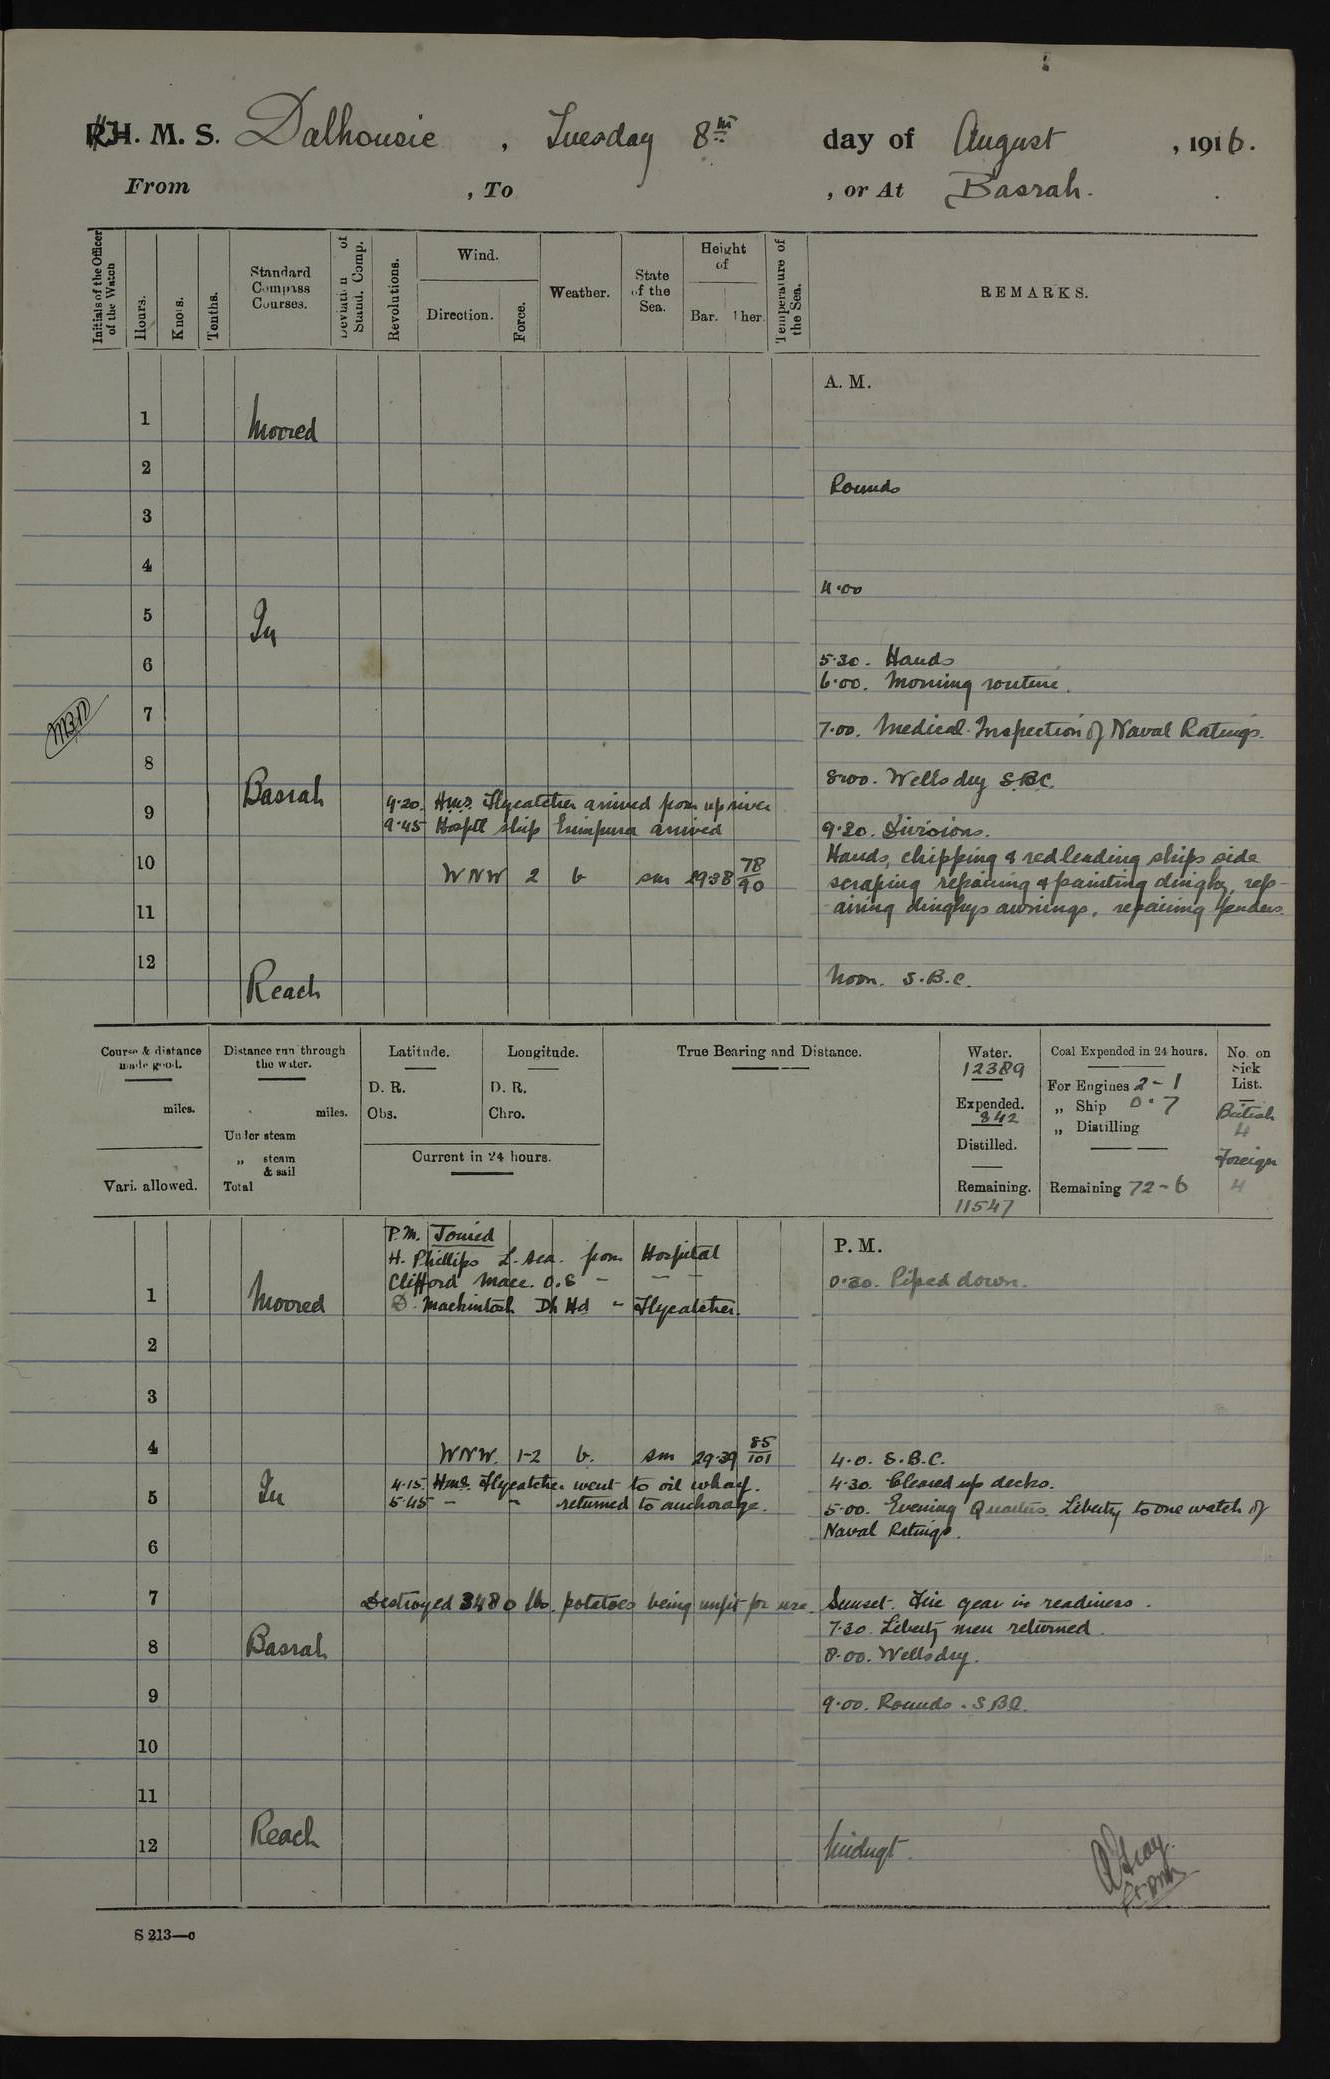 H. M. S. Dalhousie, Tuesday 8th day of August, 1916.
From , To , or At Basrah.
Initials of the Officer of the Watch
Hours.
Knots.
Tenths.
Standard Compass Courses.
Deviation of Stand. Comp.
Revolutions.
Wind.
Direction.
Force.
Weather.
State of the Sea.
Height of
Bar.
Ther.
Temperature of the Sea.
REMARKS.
A. M.
1 Moored
2
Rounds
3
4
4.00
5 In
6 5.30. Hands
6.00. Morning routine.
7
7.00. Medical Inspection of Naval Ratings.
8
8.00. Wells dry S.B.C.
Basrah
9.20. H.M.S. Flycatcher arrived from up river
9
9.45 Hosptl ship Erinpura arrived
9.20. Divisions.
10 Hands, chipping & redleading ships side
WNW 2 b sm 29.38 78/90 scraping repairing & painting dinghy, rep-
11 airing dinghys awnings, repairing fenders.
12
Reach Noon. S.B.C.
Course & distance made good.
miles.
Vari. allowed.
Distance run through the water.
miles.
Under steam
„ steam & sail
Total
Latitude.
D. R.
Obs.
Longitude.
D. R.
Chro.
Current in 24 hours.
True Bearing and Distance.
Water.
12389
Expended.
842
Distilled.
Remaining.
11547
Coal Expended in 24 hours.
For Engines 2-1
„ Ship 0.7
„ Distilling
Remaining 72-6
No. on Sick List.
British
4
Foreign
4
P.M. Joined
H. Phillips L. Sea. from Hospital
P. M.
Clifford Mace. O.S - - -
0.30. Piped down.
1 Moored D. Mackintosh Dk Hd - Flycatcher.
2
3
4 WNW. 1-2 b. sm 29.39 85/101 4.0. S.B.C.
4.15. H.M.S. Flycatcher went to oil wharf.
4.30. Cleared up decks.
5 In 5.45 - - returned to anchorage.
5.00. Evening Quarters. Liberty to one watch of
Naval Ratings.
6
7 Destroyed 3480 lbs. potatoes being unfit for use.
Sunset. Fire gear in readiness.
7.30. Liberty men returned.
8 Basrah
8.00. Wells dry.
9
9.00. Rounds. S.B.C.
10
11
12 Reach Midngt.
S 213—c